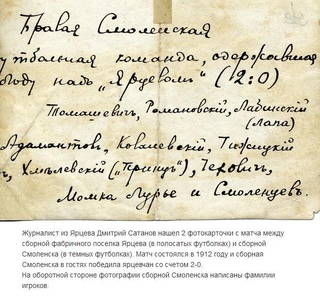 Бравая Смоленская
утбольная команда, одержавшая
бѣду надъ „Ярцевомъ“ (2:0)
Томашевичъ, Романовскій, Лабинскій
(Лапа)
Адамантовъ, Ковалевскій, Тижицкій
ъ, Хмѣлевскій („Принцъ“), Чехович,
Момка Лурье и Смоленцевъ.
Журналист из Ярцева Дмитрий Сатанов нашел 2 фотокарточки с матча между
сборной фабричного поселка Ярцева (в полосатых футболках) и сборной
Смоленска (в темных футболках). Матч состоялся в 1912 году и сборная
Смоленска в гостях победила ярцевчан со счетом 2-0.
На оборотной стороне фотографии сборной Смоленска написаны фамилии
игроков.